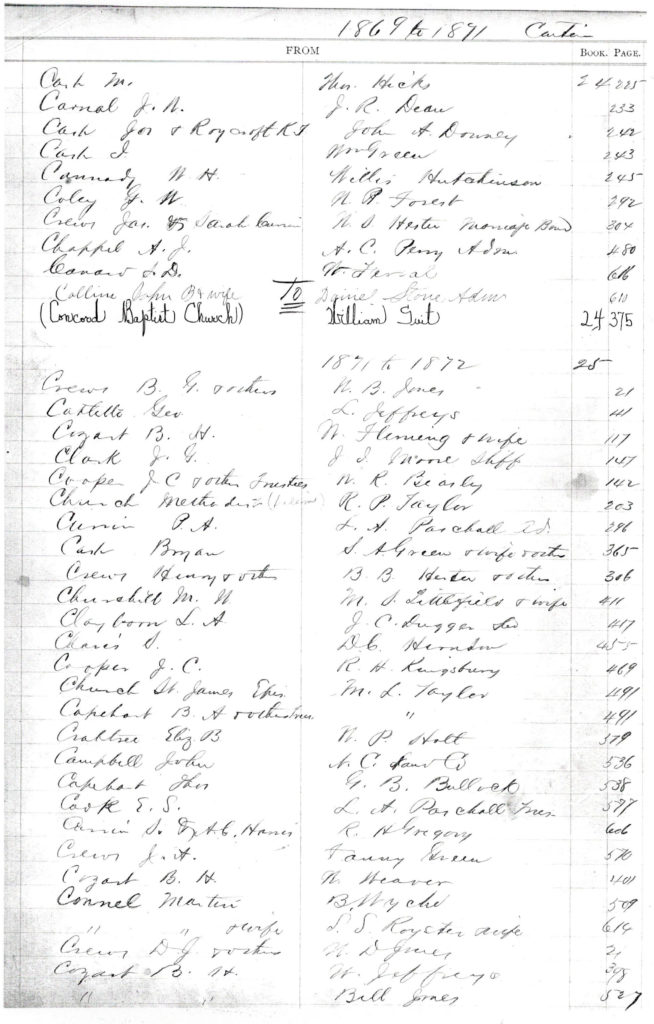 1869 to 1871
FROM BOOK. PAGE.
Cash M. Thos. Hicks 24 225
Carnal J. N. J. R. Dean 233
Cash Jos & Roycroft R J John A. Downey 242
Cash I Wm Green 243
Cannady W H. Willis Hutchinson 245
Coley G. W W. P. Forest 292
Crews Jas. & Sarah W. S Hester Marriage Bond 304
Chappel A. J. A. C. Perry Adm 480
D. W 616
Collins John B & wife Daniel Stone Adm 611
TO
(Concord Baptist Church) William Guit 24 375
1871 to 1872 25
Crews B. G. & others W. B. Jones 21
Geo L. Jeffreys 41
Cozart B. H. W. Fleming & wife 117
Clark J. G. J. I. Moore Shff 147
Cooper J C & others Trustees W. R. Beasly 142
Church Methodist R. P. Taylor 203
Currin P A. L. A. Paschall 296
Cash Bryan S. A Green & wife & others 365
Crews Henry & others B. B. Hester & others 306
Churchill M. W M. S. Littlefield & wife 411
Clayborn L. A J. C. Dugger 417
S. D. C. Herndon 455
Cooper J. C. R. H. Kingsbury 469
Church St. James Epis M. L. Taylor 491
Capehart B. A & others Trus " 491
Crabtree Eliz B W. P. Holt 379
Campbell John N. C. Land Co 536
Capehart Thos G. B. Bullock 538
Cook E. S. L. A. Paschall Trus. 577
Currin S. & A. C. Harris R. H Gregory 606
Crews J. A. Fanny Green 570
Cozart B. H. W Weaver 401
Connel Martin B Wyche 509
" " & wife S. S. Royster & wife 614
Crews D. J. & others W D Jones 21
Cozart B. H. W. Jeffreys 398
" " Bill Jones 527